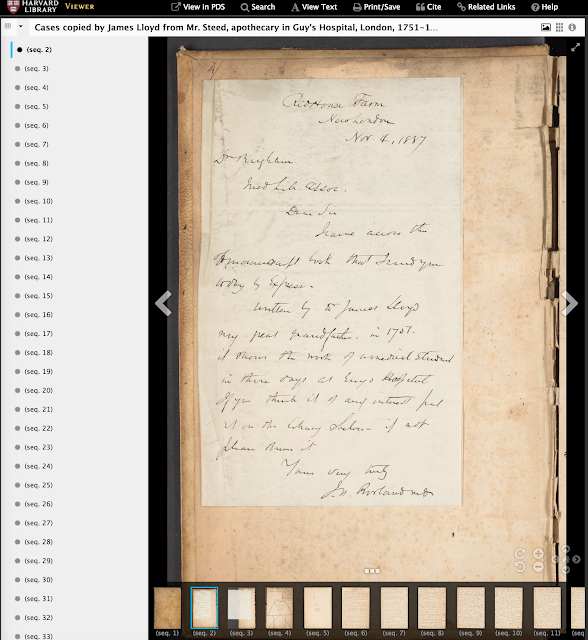 HARVARD
LIBRARY VIEWER
View in PDS
Search
View Text
Print/Save
Cite
Related Links
Help
Cases copied by James Lloyd from Mr. Steed, apothecary in Guy's Hospital, London, 1751-1...
(seq. 2)
(seq. 3)
(seq. 4)
(seq. 5)
(seq. 6)
(seq. 7)
(seq. 8)
(seq. 9)
(seq. 10)
(seq. 11)
(seq. 12)
(seq. 13)
(seq. 14)
(seq. 15)
(seq. 16)
(seq. 17)
(seq. 18)
(seq. 19)
(seq. 20)
(seq. 21)
(seq. 22)
(seq. 23)
(seq. 24)
(seq. 25)
(seq. 26)
(seq. 27)
(seq. 28)
(seq. 29)
(seq. 30)
(seq. 31)
(seq. 32)
(seq. 33)
Farm
New London
Nov. 4, 1887
Dr Brigham
Med Lib. Assoc.
Dear Sir
across the
manuscript book that I send you
today by Express.
Written by Dr James Lloyd
my great grandfather. in 1751.
it shows the work of a medical student
in those days at Guys Hospital
If you think it of any interest put
it on the library shelves if not
please burn it
Yours very truly
(seq. 1)
(seq. 2)
(seq. 3)
(seq. 4)
(seq. 5)
(seq. 6)
(seq. 7)
(seq. 8)
(seq. 9)
(seq. 10)
(seq. 11)
(seq.